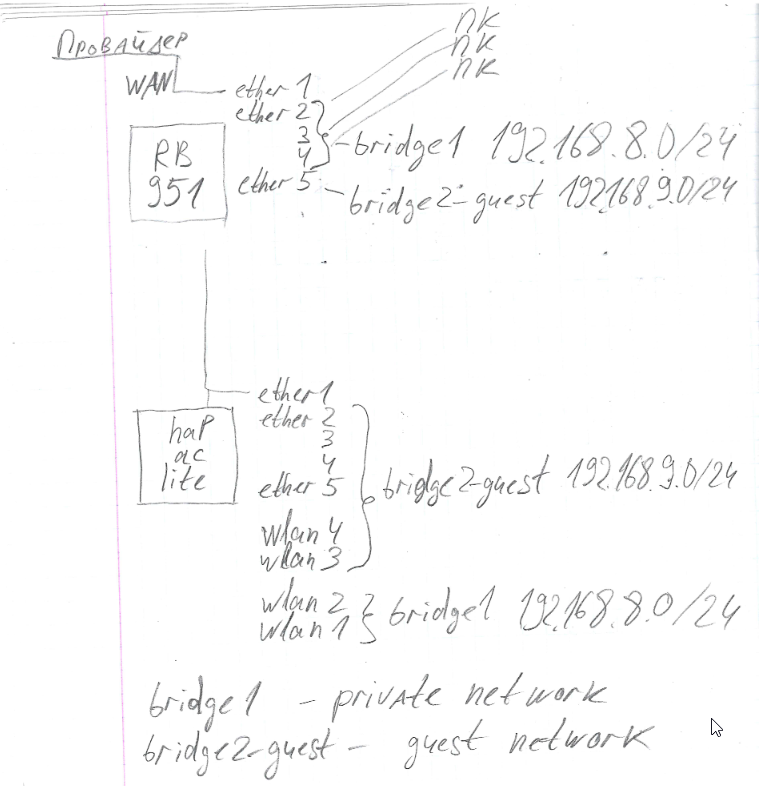 ПРОВАЙДЕР
ПК
ПК
ПК
WAN
ether 1
ether 2
3
4
ether 5
RB
951
bridge1 192.168.8.0/24
bridge2-guest 192.168.9.0/24
ether1
ether 2
3
4
ether 5
haP
ac
lite
bridge2-guest 192.168.9.0/24
wlan 4
wlan 3
wlan 2
wlan 1
bridge1 192.168.8.0/24
bridge1 - private network
bridge2-guest - guest network